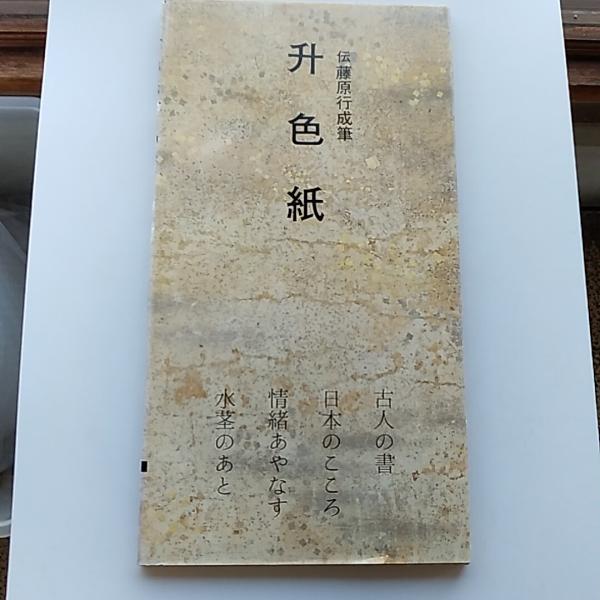 伝藤原行成筆
升色紙
古人の書
日本のこころ
情緒あやなす
水茎のあと